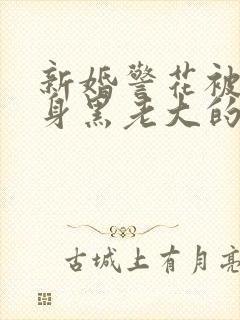 新婚警花被
身黑老大的
古城上有月亮